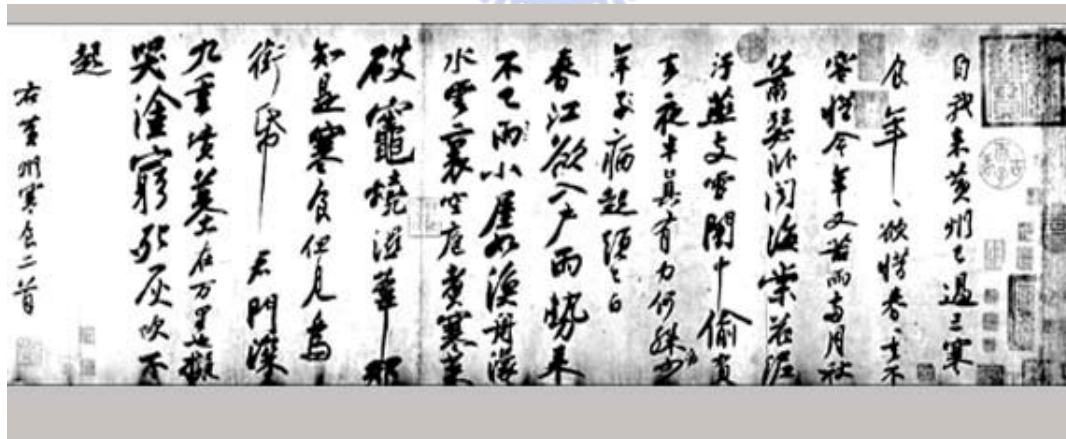 自我来黄州已過三寒
食年〻欲惜春〻去不
容惜今年又苦雨兩月秋
蕭瑟卧聞海棠花泥
汙燕支雪闇中偷負
去夜半真有力何殊少
年子病起頭已白
春江欲入户雨勢来
不已雨小屋如漁舟濛〻
水雲裏空庖煮寒菜
破竈燒濕葦那
知是寒食但見烏
銜帋君門深
九重墳墓在万里也擬
哭塗窮死灰吹不
起
右黄州寒食二首